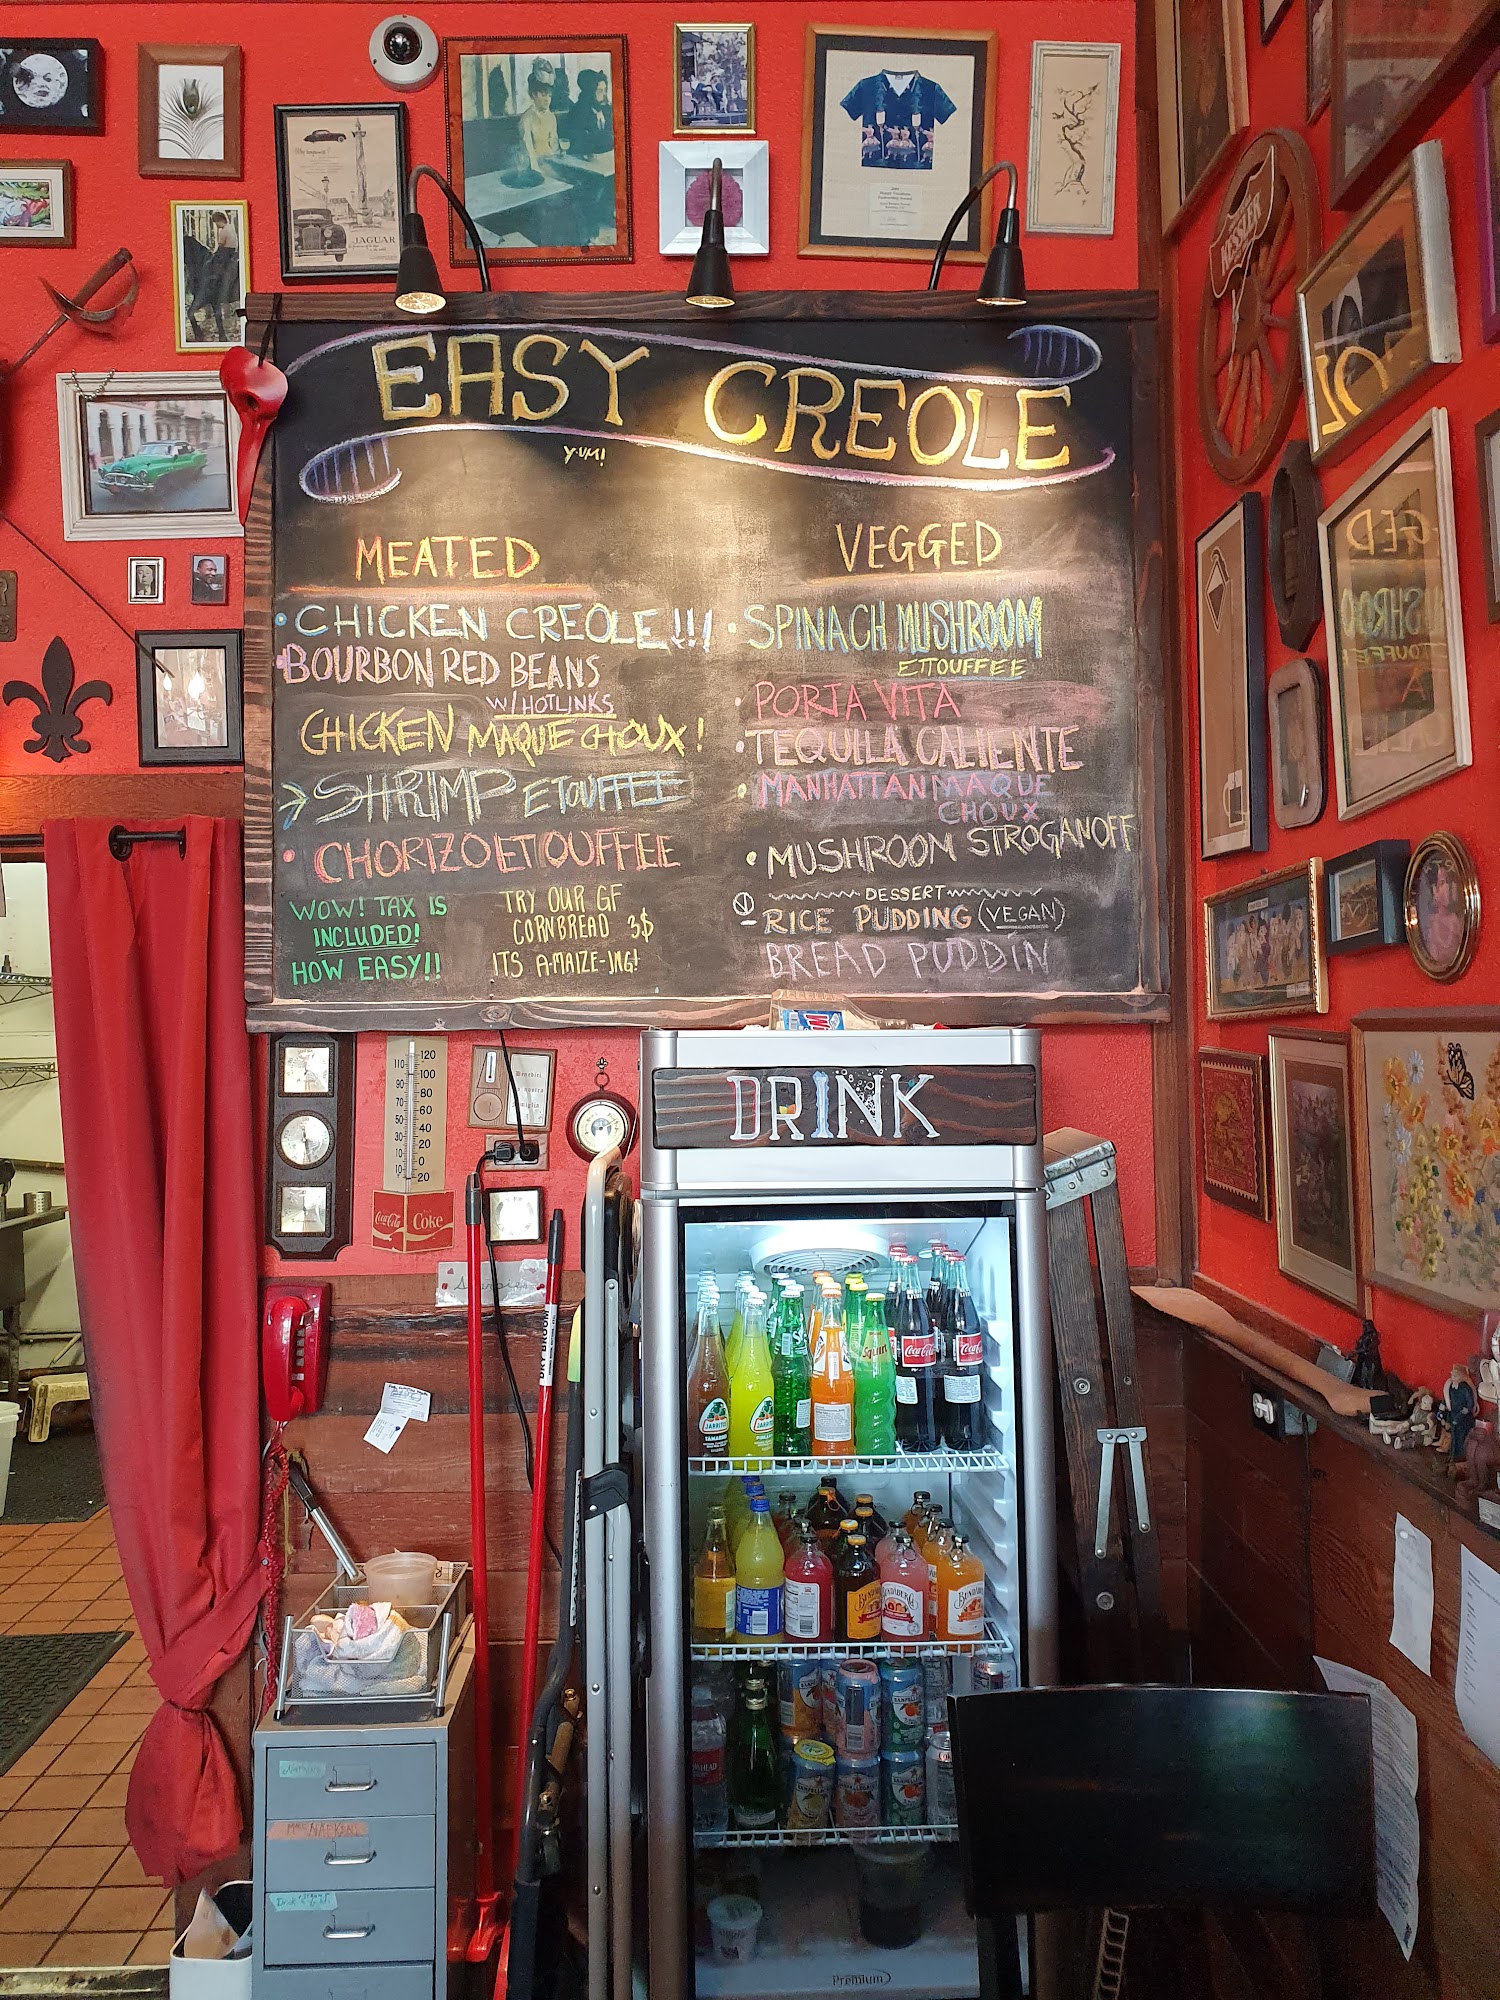 JAGUAR
KESSLER
EASY CREOLE
YUM!
MEATED
• CHICKEN CREOLE!!!
BOURBON RED BEANS
W/HOTLINKS
CHICKEN MAQUE CHOUX!
SHRIMP ETOUFFEE
• CHORIZO ETOUFFEE
WOW! TAX IS
INCLUDED!
HOW EASY!!
TRY OUR GF
CORNBREAD 3$
ITS A-MAIZE-ING!
VEGGED
• SPINACH MUSHROOM
ETTOUFFEE
• PORTA VITA
• TEQUILA CALIENTE
• MANHATTAN MAQUE
CHOUX
• MUSHROOM STROGANOFF
DESSERT
V - RICE PUDDING (VEGAN)
BREAD PUDDIN
DRINK
120
110
100
90
80
80
70
60
60
50
40
40
30
20
20
10
0
10
20
Coca-Cola
Coke
Squirt
Coca-Cola
Coca-Cola
JARRITOS
JARRITOS
BUNDABERG
BUNDABERG
BUNDABERG
SANPELLEGRINO
NAPKINS
Premium